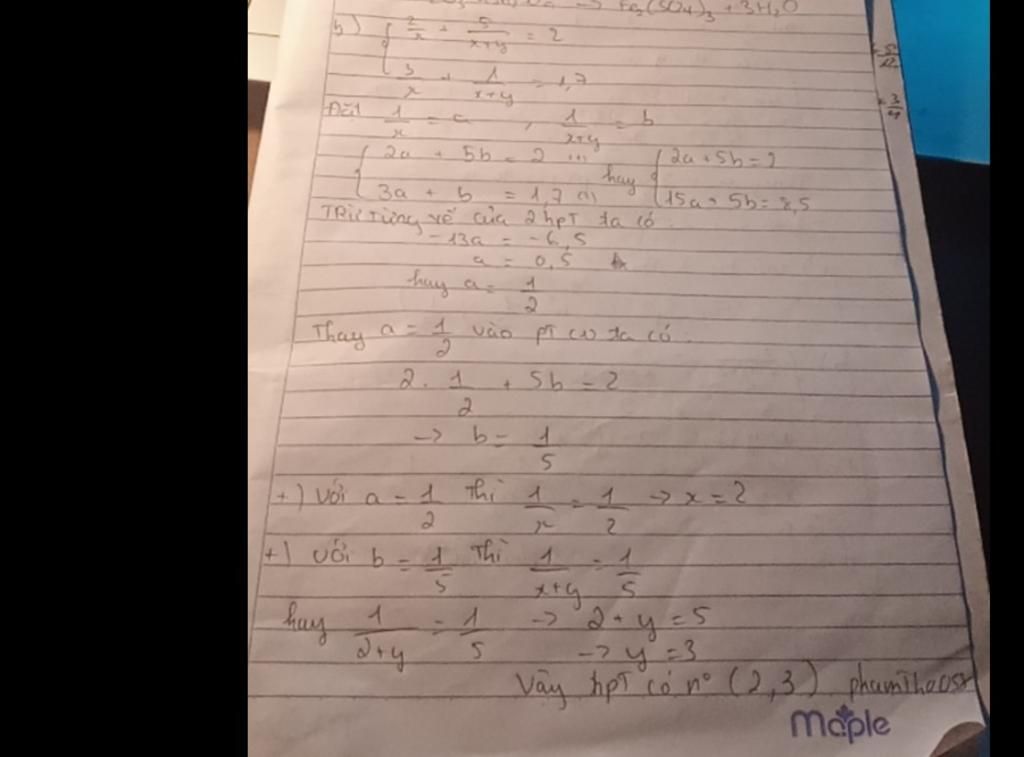 → Fe₂(SO₄)₃ + 3H₂O
b) { 2/x + 5/(x+y) = 2
3/x + 1/(x+y) = 1,7
Đặt 1/x = a , 1/(x+y) = b
{ 2a + 5b = 2 hay { 2a + 5b = 2
3a + b = 1,7 15a + 5b = 8,5
Trừ từng vế của 2 hpT ta có
-13a = -6,5
a = 0,5
hay a = 1/2
Thay a = 1/2 vào pT (1) ta có
2. 1/2 + 5b = 2
→ b = 1/5
+) Với a = 1/2 Thì 1/x = 1/2 → x = 2
+) Với b = 1/5 Thì 1/(x+y) = 1/5
hay 1/(2+y) = 1/5 → 2 + y = 5
→ y = 3
Vậy hpT có n° (2,3) phamThao
Maple